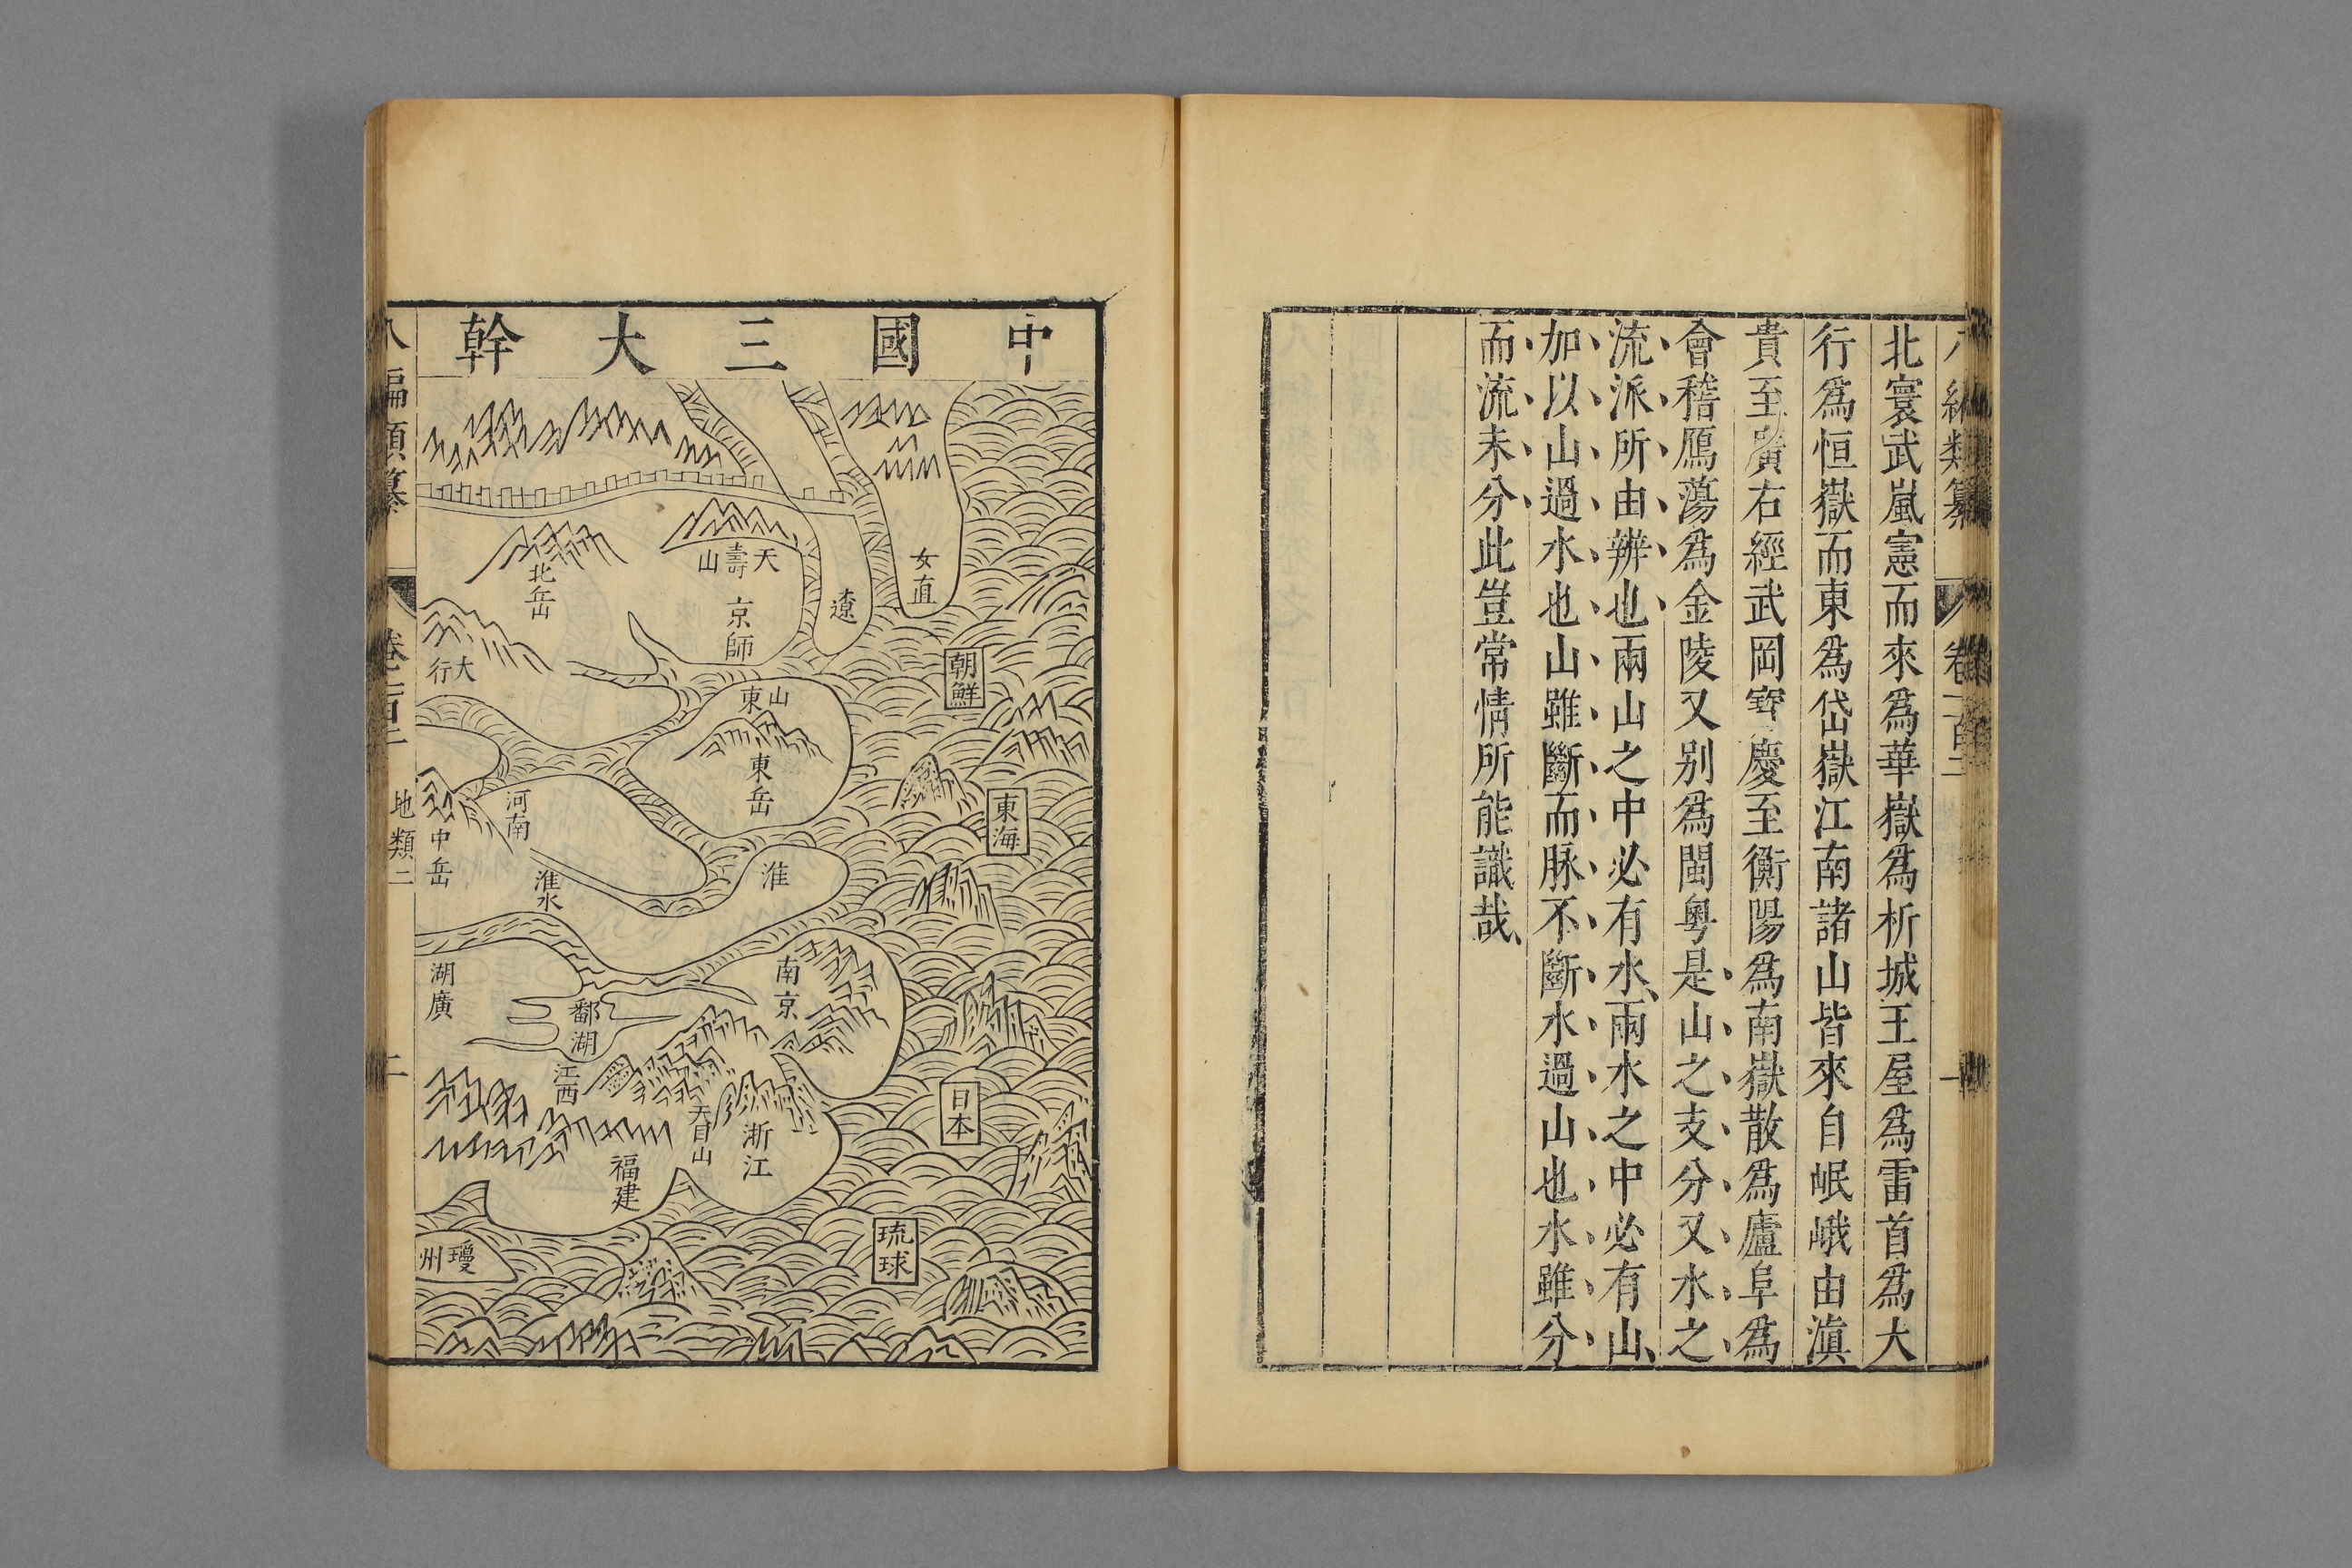 類纂
卷一百二
北寰武嵐憲而來爲華嶽爲析城王屋爲雷首爲大
行爲恒嶽而東爲岱嶽江南諸山皆來自岷峨由滇
貴至廣右經武岡寶慶至衡陽爲南嶽散爲廬阜爲
會稽鴈蕩爲金陵又别爲閩粤是山之支分又水之
流派所由辨也兩山之中必有水兩水之中必有山
加以山過水也山雖斷而脉不斷水過山也水雖分
而流未分此豈常情所能識哉
中國三大幹
女直
遼
天壽山
京師
北岳山
大行
朝鮮
山東
東岳
東海
河南
中岳
淮水
淮
南京
湖廣
鄱湖
江西
天目山
浙江
福建
日本
琉球
瓊州
八編類纂
卷一百二
地類二
二